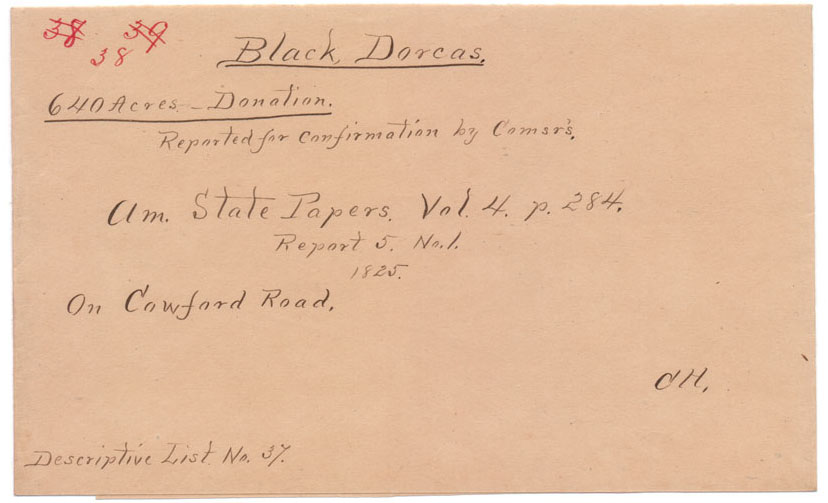 38 39
38
Black, Dorcas.
640 Acres - Donation.
Reported for confirmation by Comsr's.
Am. State Papers. Vol. 4. p. 284.
Report 5. No. 1.
1825.
On Cowford Road.
CH.
Descriptive List No. 37.